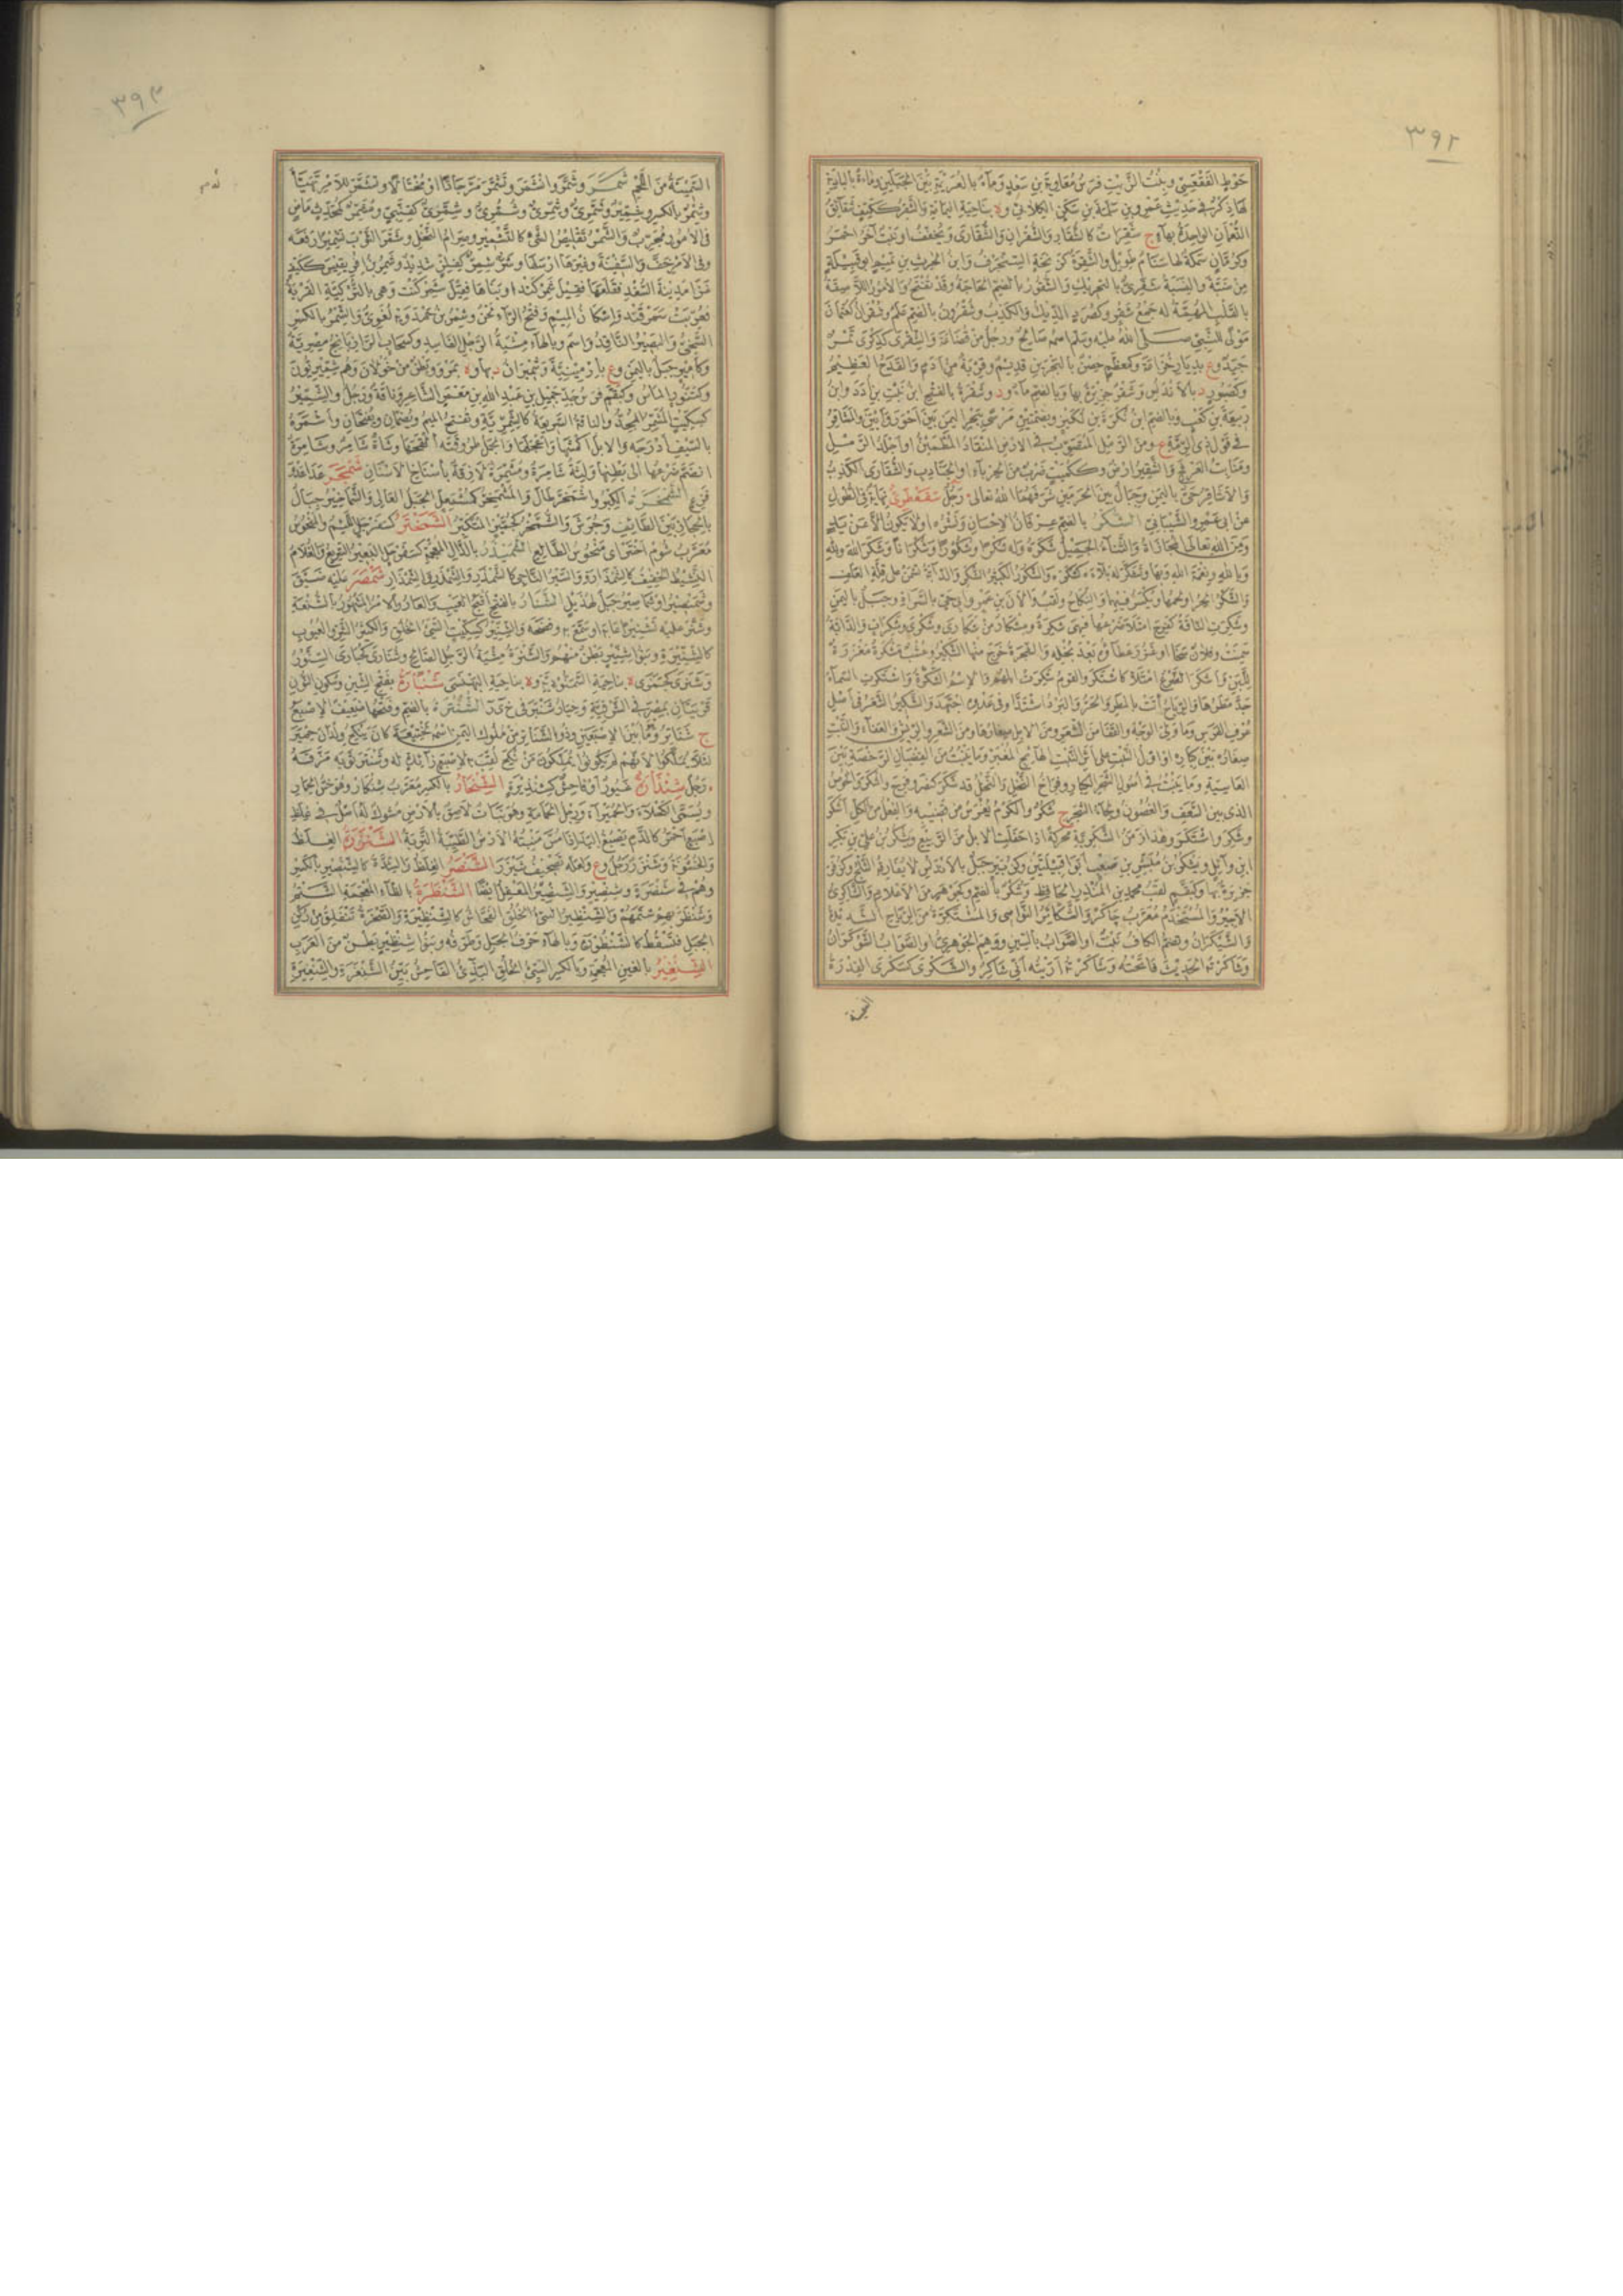 ٣٩٢
حوط الفقعسي وبنت الزيت فرس معاوية بن سعد وماءة بالعريمة بين الجبلين وماءة بالبادية
لها ذكر في حديث عمرو بن سلمة بن سكن الكلابي و ه بناحية اليمامة والشقر ككتف شقائق
النعمان الواحدة بهاء ج شقرات كالشقار والشقران والشقارى ويخفف او نبت آخر احمر
وكرمان سمكة لها سنام طويل والشقرة كزنخة السنجرف وابن الحرث بن تميم ابو قبيلة
من ضبة والنسبة شقري بالتحريك والشقور بالضم الحاجة وقد يفتح والامور اللاصقة
بالقلب المهمة له جمع شقر وكصرد الديك والكذب وشقرون بالضم علم وشقران كعثمان
مولى للنبي صلى الله عليه وسلم اسمه صالح ورجل من قضاعة والشقرى كذكرى تمر
جيد و ع بديار خزاعة وكمعظم حصن بالبحرين قديم وقربة من ادم والقدح العظيم
وكصبور د بالاندلس وشقر جزيرة بها وبالضم ماء و د وشقرة بالضم ابن نبت بن ادد وابن
ربيعة بن كعب وبالضم ابن نكرة بن لكيز وبضمتين مرسى ببحر اليمن بين احور وابين والمشاقر
في قول ذي الرمة ع ومن الرمل المتصوب في الارض المنقاد المطمئن او اجلد الرمل
ومنابت العرفج والشقير ارض وككميت ضرب من الحرباء او الجنادب والشقارى الكذب
والاشاقر حي باليمن وجبال بين الحرمين شرفهما الله تعالى رجل شقحطب نهاية في الطول
عن ابي عمرو الشيباني الشكر بالضم عرفان الاحسان ونشره او لا يكون الا عن يد
ومن الله تعالى المجازاة والثناء الجميل شكره وله شكرا وشكورا وشكرانا وشكر الله ولله
وبالله ونعمة الله وبها وتشكر له بلاءه كشكره والشكور الكثير الشكر والدابة تسمن على قلة العلف
والشكر الحر او لحمها ويكسر فيهما والنكاح ولقب والان بن عمرو ابي حي بالسراة وجبل باليمن
وشكرت الناقة كفرح امتلأ ضرعها فهي شكرة ومشكار من شكارى وشكرى وشكرات والدابة
سمنت وفلان سخا او غزر عطاؤه بعد بخله والشجرة خرج منها الشكير وعشب مشكرة مغزرة
للبن واشكر الضرع امتلأ كاشتكر والقوم شكرت ابلهم والاسم الشكرة واشتكرت السماء
جد مطرها والرياح اتت بالمطر والحر والبرد اشتدا وفي عدوه اجتهد والشكير الشعر في اصل
عرف الفرس وما ولي الوجه والقفا من الشعر ومن الابل صغارها ومن الشعر والريش والعفاء والنبت
صغاره بين كباره او اول النبت على اثر النبت الهائج المغبر وما ينبت من القضبان الرخصة بين
العاسية وما ينبت في اصول الشجر الكبار وفراخ النخل والنخل قد شكر كنصر وفرح والشكر كثر الخوص
الذي بين السعف والغصون ولحاء الشجر ج شكر والكرم يغرس من قضيبه والفعل من الكل اشكر
وشكر واشتكر وهذا زمن الشكرية محركة اذا حفلت الابل من الربيع ويشكر بن علي بن بكر
ابن وائل ويشكر بن مبشر بن صعب ابوا قبيلتين وكزبير جبل بالاندلس لا يفارقه الثلج وكزفر
جزيرة بها وكبقم لقب محمد بن المنذر الحافظ وشكر بالضم وكجوهر من الاعلام والشاكري
الاجير والمستخدم معرب چاكر والشكائر النواصي والمشتكرة من الرياح الشديدة
والشيكران وتضم الكاف نبت او الصواب بالسين ووهم الجوهري او الصواب الشوكران
وشاكرته الحديث فاتحته وشاكرته اريته اني شاكر والشكرى كسكرى الفدرة
٣٩٣
السمينة من اللحم شمر وشمر وانشمر وتشمر مر جادا او مختالا وتشمر للامر تهيأ
وشمر بالكسر وشمير وشمري وشمري وشمري وشمري كقنبي ومشمر كمحدث ماض
في الامور مجرب والشمر تقليص الشيء كالتشمير وصرام النخل وشمر الثوب تشميرا رفعه
وفي الامر خف والسفينة وغيرها ارسلها وشر شمر كفلز شديد وشمر بن افريقيش ككتف
غزا مدينة السغد فقلعها فقيل شمر كند او بناها فقيل شمر كنت وهي بالتركية القرية
فعربت سمرقند واسكان الميم وفتح الراء لحن وشمر بن حمدويه لغوي والشمر بالكسر
السخي والبصير الناقد واسم وبالهاء مشية الرجل الفاسد وكسحاب الرازيانج مصرية
وكامير جبل باليمن و ع بارمينية وشميران د بها و ه بمرو وبطن من خولان وهم شميريون
وكتنور الماس وكبقم فرس جد جميل بن عبد الله بن معمر الشاعر وناقة ورجل والشمير
كسكيت المشمر المجد والناقة السريعة كالشمرية وتفتح الميم ويضمان ويفتحان واشمره
بالسيف ادرجه والابل اكمشها واعجلها والجمل طروقته القحها وشاة شامر وشامرة
انضم ضرعها الى بطنها ولثة شامرة ومتشمرة لازقة باسناخ الاسنان شمجر عدا عدو
فزع الشمخرة الكبر واشمخر طال والمشمخر كمشمعل الجبل العالي والشماخير جبال
بالحجاز بين الطائف وجرش والشمخر كجثجر المتكبر الشمختر كسفرجل اللئيم والمنحوس
معرب شوم اختر اي منحوس الطالع الشميذر بالذال المعجمة كسفرجل البعير السريع والغلام
النشيط الخفيف كالشمذارة والسير الناجي كالشمذر والشمذر والشمذار شمصر عليه ضيق
وشمنصير او شماصير جبل لهذيل الشنار بالفتح اقبح العيب والعار والامر المشهور بالشنعة
وشنر عليه تشنيرا عابه او سمع به وفضحه والشنير كسكيت السيئ الخلق والكثير الشر والعيوب
كالشنيرة وبنو شنير بطن منهم والشنرة مشية الرجل الصالح وشنارى كحبارى السنور
وشنرى كجمزى ه بناحية السمنودية و ه بناحية البهنسى شنبارة بفتح الشين وسكون النون
قريتان بمصر في الشرقية وخيار شنبر في خ ي ر الشنترة بالضم وفتحها ضعيف الاصبع
ج شناتر وما بين الاصبعين وذو الشناتر من ملوك اليمن اسمه لختيعة كان ينكح ولدان حمير
لئلا يملكوا لانهم لم يكونوا يملكون من نكح لقب به لاصبع زائدة له وشنتر ثوبه مزقه
رجل شنذارة غيور او فاحش كشنذيرة الشنجار بالكسر معرب شنكار وهو خس الحمار
ويسمى الكحلاء والحميراء ورجل الحمامة وهو نبات لاصق بالارض مشوك له اصل في غلظ
اصبع احمر كالدم يصبغ اليد اذا مس منبته الارض الطيبة التربة الشنزرة الغلظ
والخشونة وشنزر رجل و ع ولعله تصحيف شيزر الشنصر الغلظ والشدة كالشنصير بالكسر
وهم في شنصرة وشنصير والشنصير المعقل ايضا الشنظرة بالظاء المعجمة الشتم
وشنظر بهم شتمهم والشنظير السيئ الخلق الفحاش كالشنظيرة والصخرة تنفلق من ركن
الجبل فتسقط كالشنظورة وبالهاء حرف الجبل وطرفه وبنو شنظير بطن من العرب
الشنغير بالغين المعجمة وبالكسر السيئ الخلق البذي الفاحش بين الشنغرة والشنغيرة